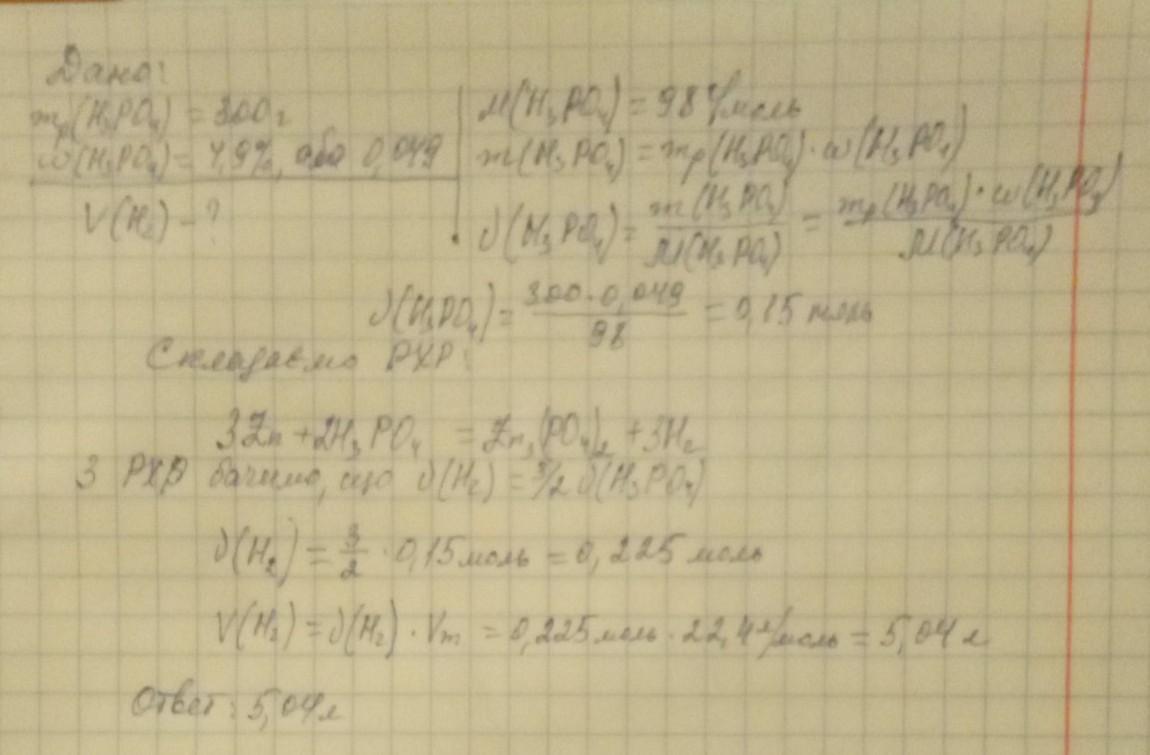 Дано:
mр(H₃PO₄) = 300 г
ω(H₃PO₄) = 4,9%, або 0,049
V(H₂) - ?
M(H₃PO₄) = 98 г/моль
m(H₃PO₄) = mр(H₃PO₄) · ω(H₃PO₄)
ν(H₃PO₄) = m(H₃PO₄)/M(H₃PO₄) = mр(H₃PO₄) · ω(H₃PO₄)/M(H₃PO₄)
ν(H₃PO₄) = 300 · 0,049/98 = 0,15 моль
Складаємо РХР:
3Zn + 2H₃PO₄ = Zn₃(PO₄)₂ + 3H₂
З РХР бачимо, що ν(H₂) = 3/2 ν(H₃PO₄)
ν(H₂) = 3/2 · 0,15 моль = 0,225 моль
V(H₂) = ν(H₂) · Vm = 0,225 моль · 22,4 л/моль = 5,04 л
Ответ: 5,04 л